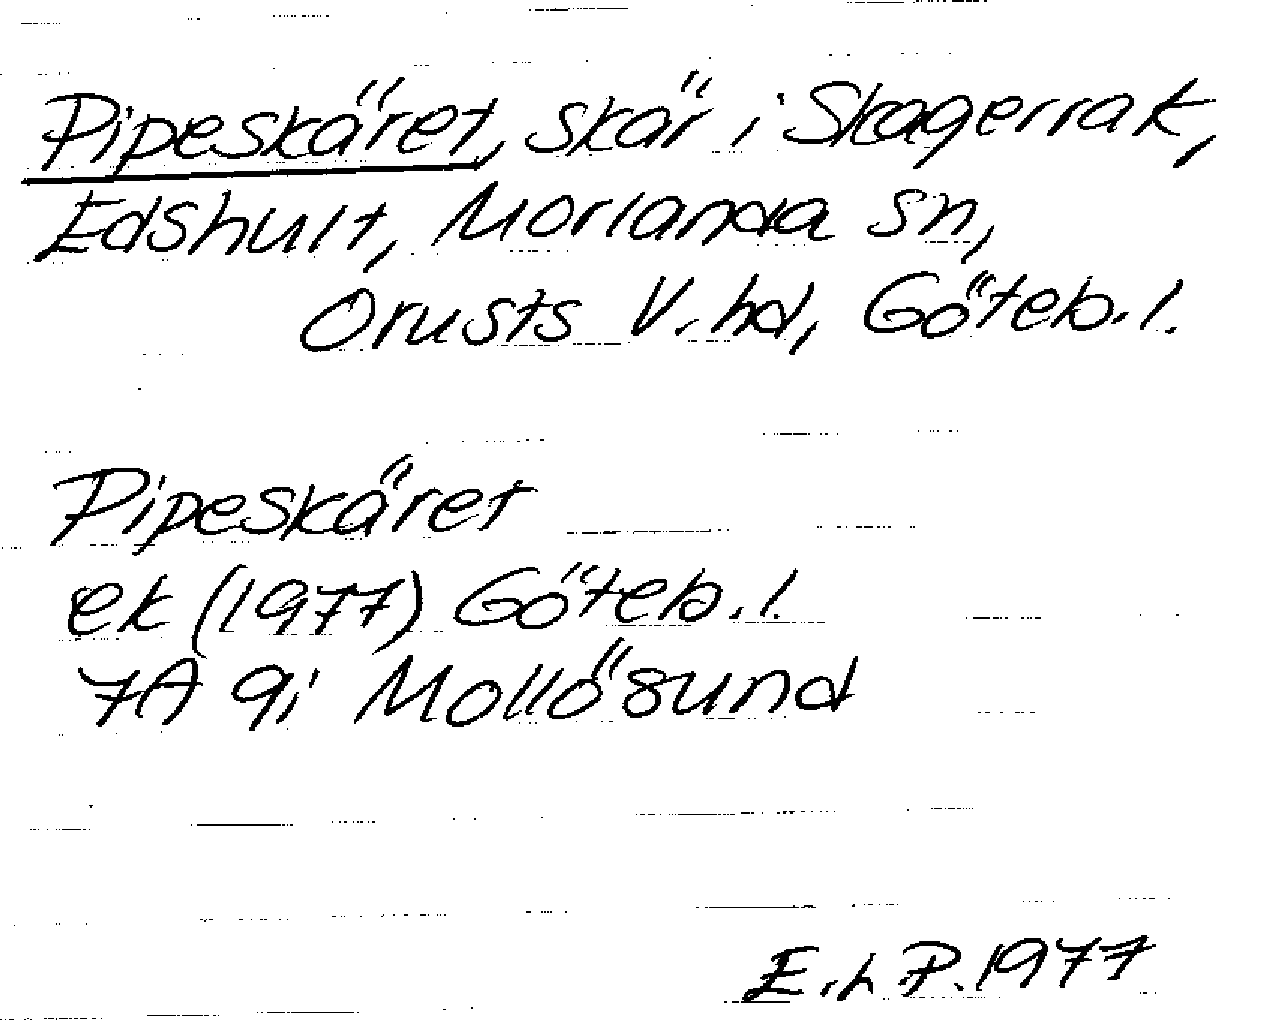 Pipeskäret, skär i Skagerrak,
Edshult, Morlanda sn,
Orusts V. hd, Göteb. l.
Pipeskäret
ek (1977) Göteb. l.
7A 9i Mollösund
E. h P. 1977